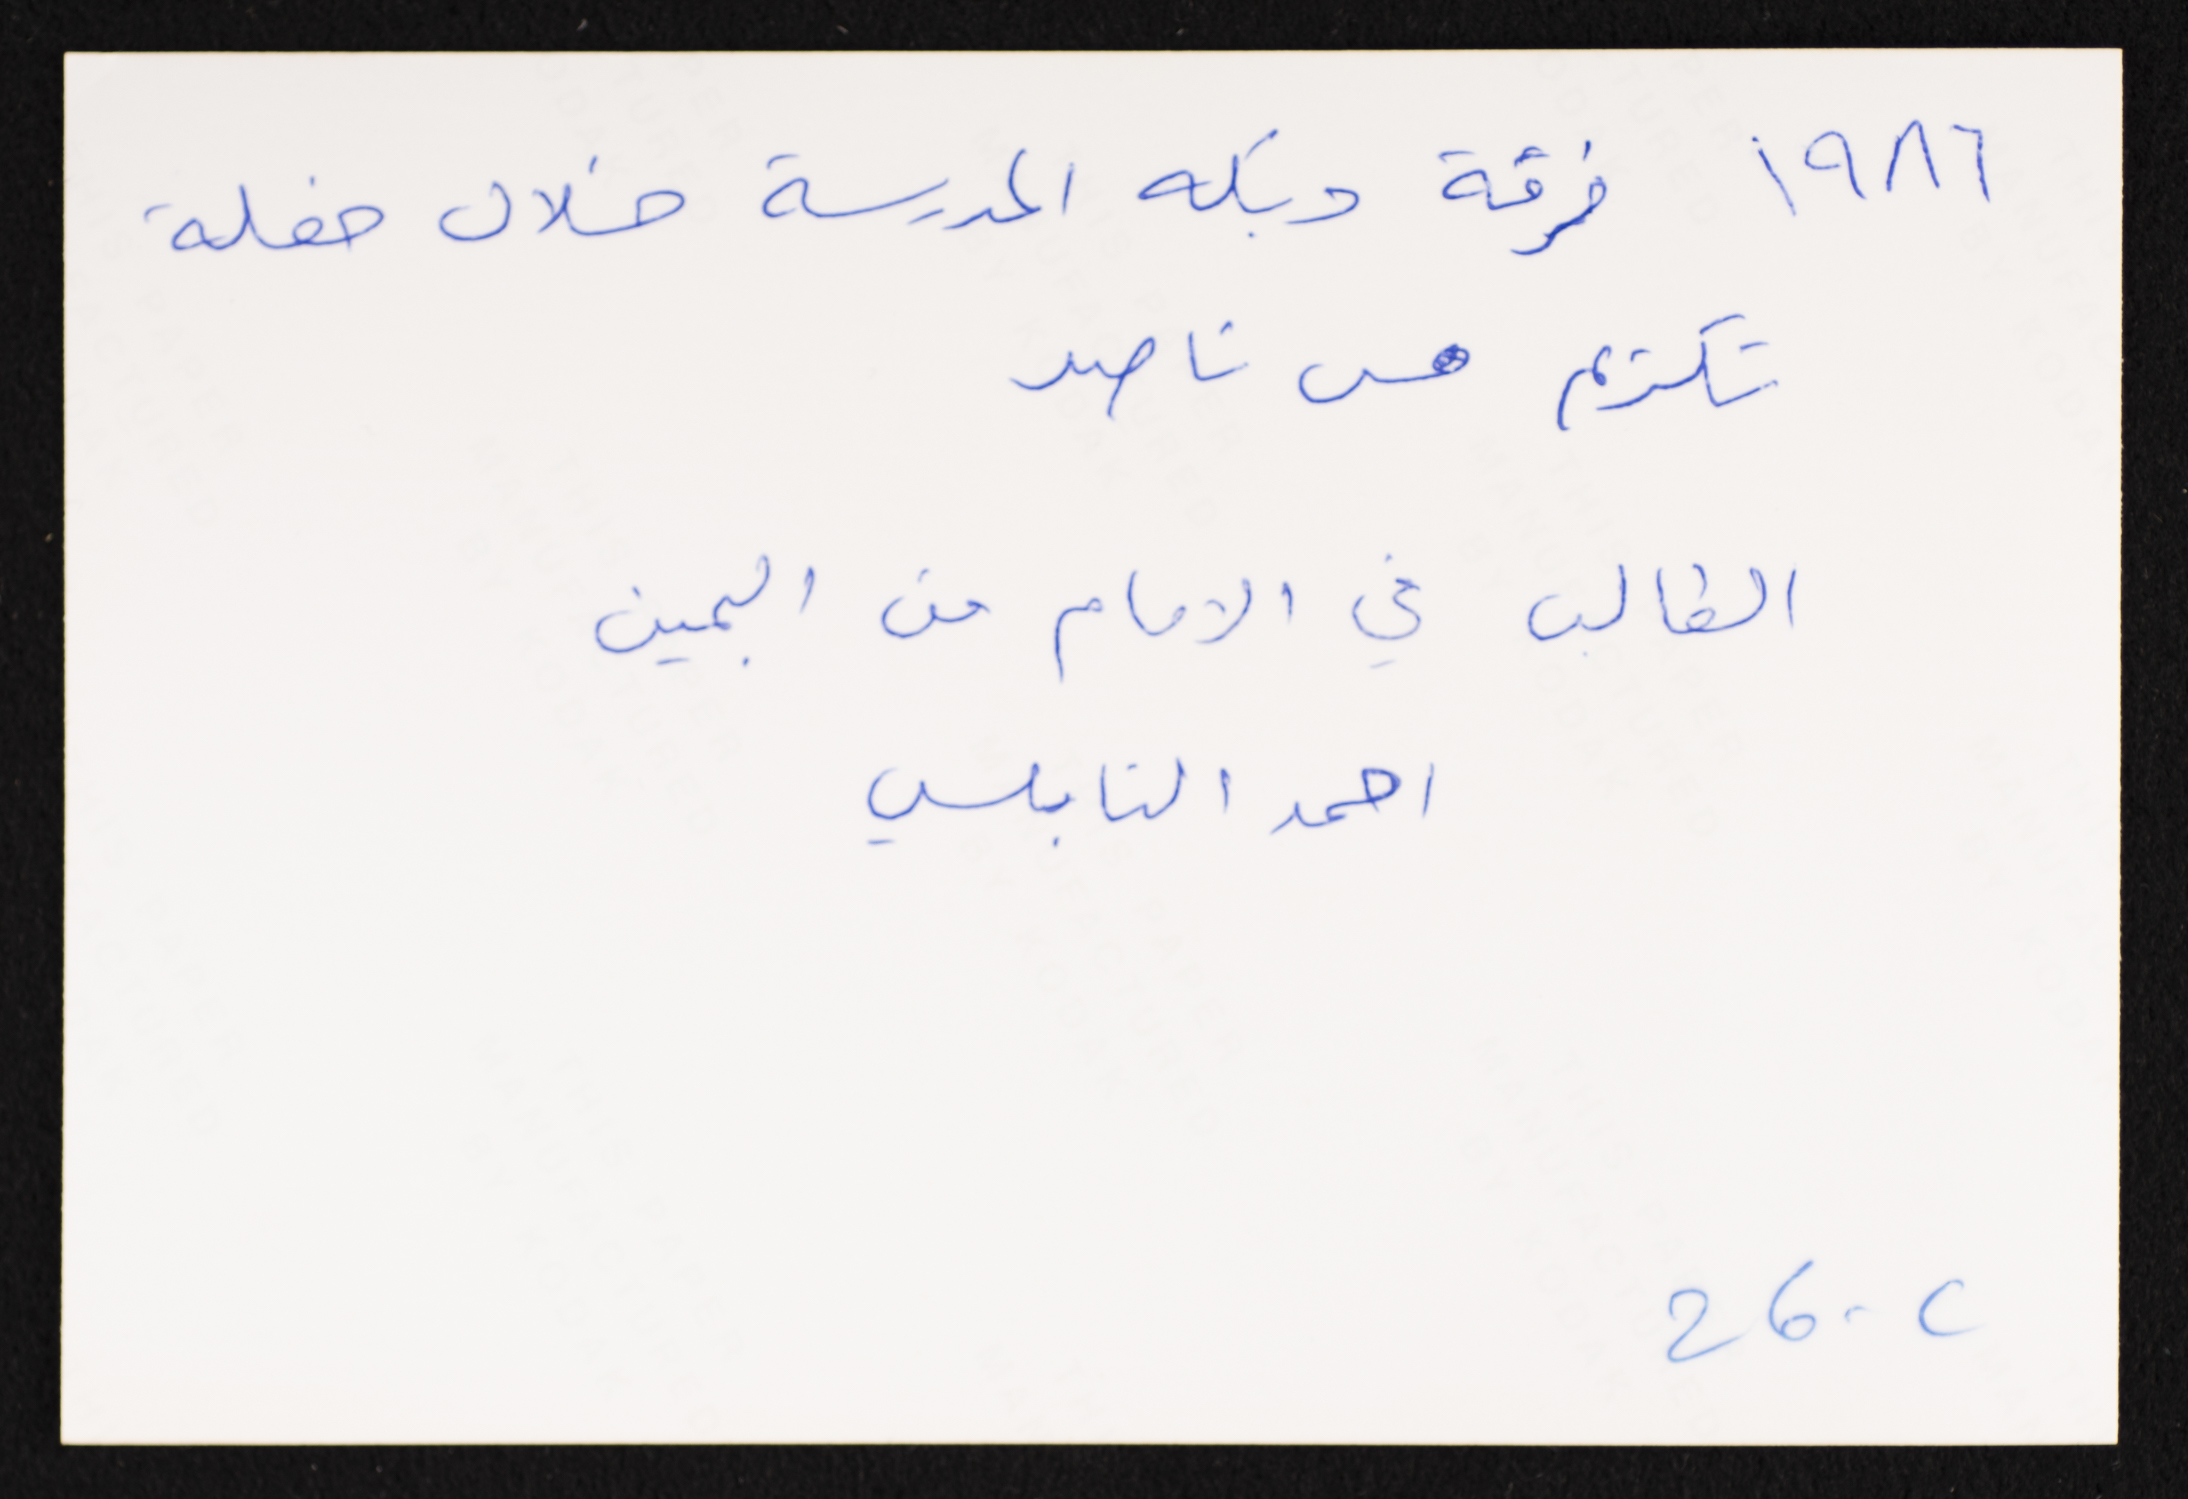 ١٩٨٦ فرقة دبكه المدرسة خلال حفلة
تكريم مس ناصر
الطالب في الامام من اليمين
احمد النابلسي
26-C